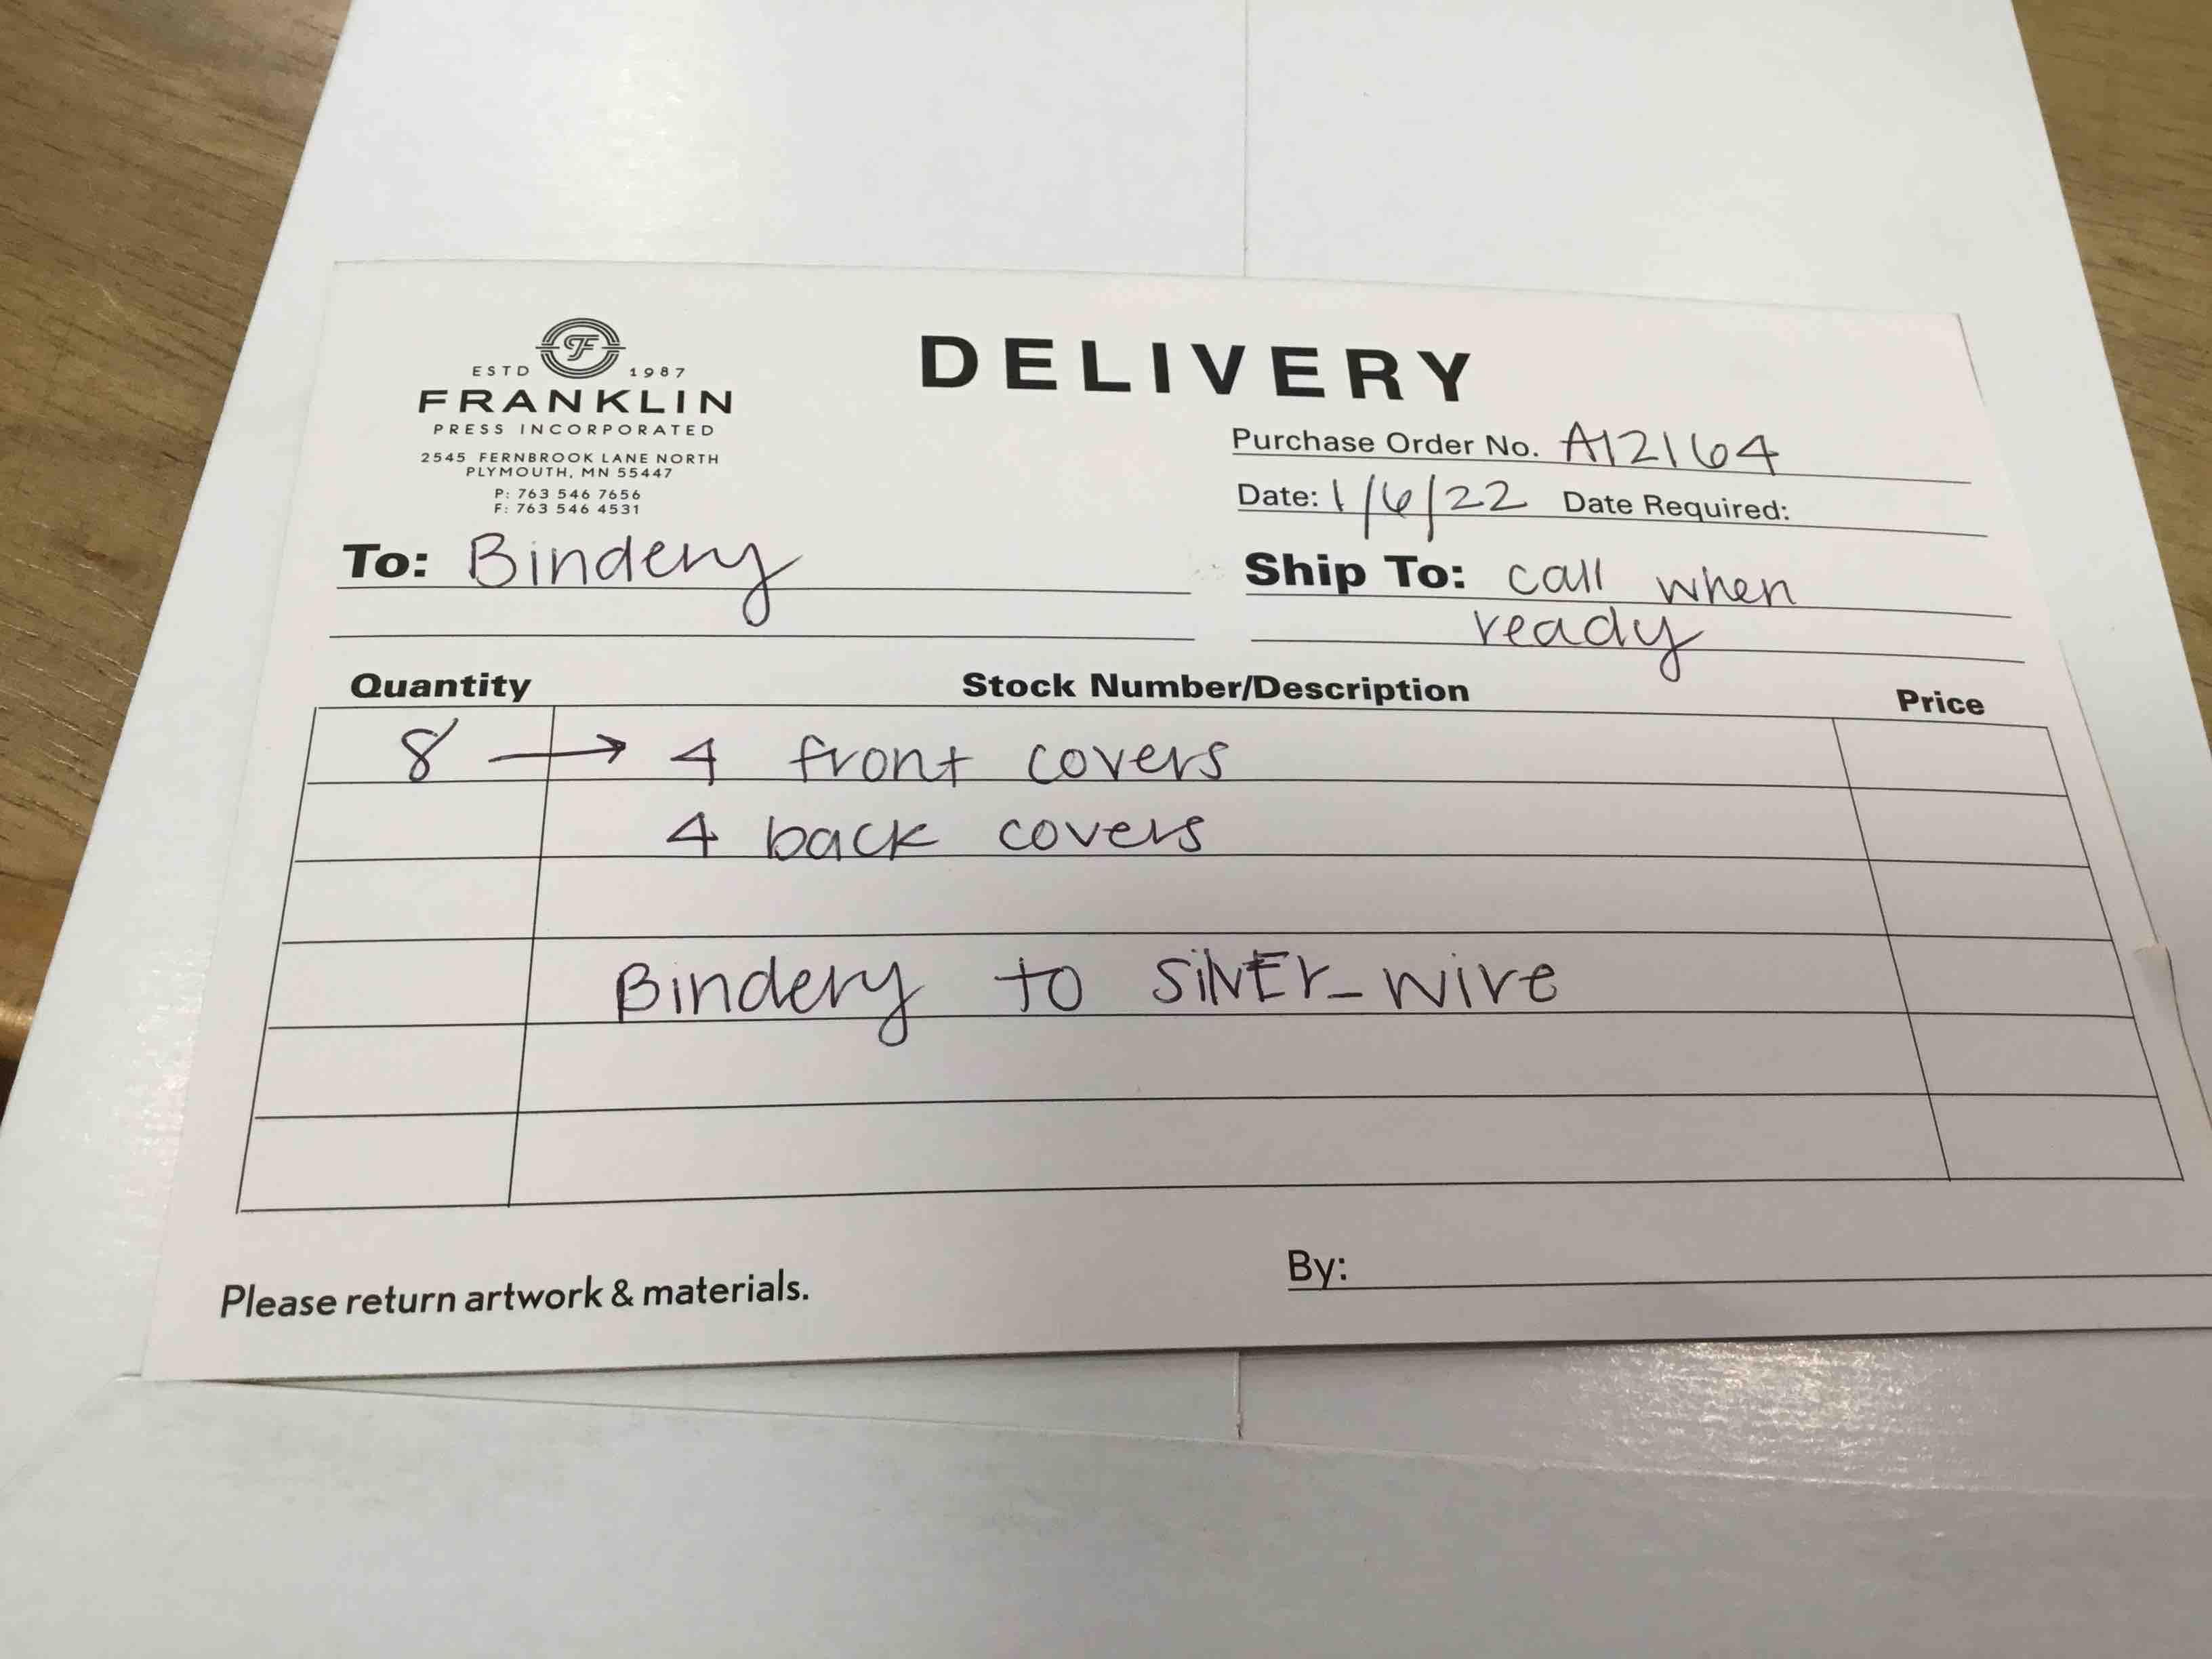 F
ESTD 1987
FRANKLIN
PRESS INCORPORATED
2545 FERNBROOK LANE NORTH
PLYMOUTH, MN 55447
P: 763 546 7656
F: 763 546 4531
DELIVERY
Purchase Order No. A12164
Date: 1/6/22 Date Required:
To: Bindery
Ship To: call when
ready
Quantity Stock Number/Description Price
8 → 4 front covers
4 back covers
Bindery to SilVEr_wire
Please return artwork & materials.
By: